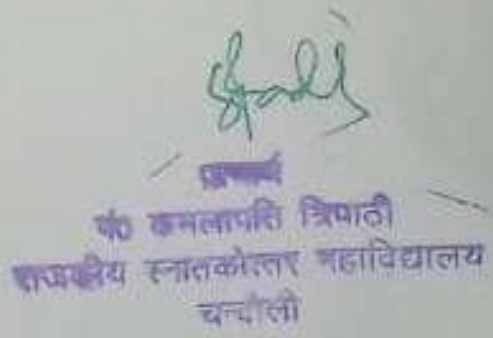 प्राचार्य
पं० कमलापति त्रिपाठी
राजकीय स्नातकोत्तर महाविद्यालय
चन्दौली